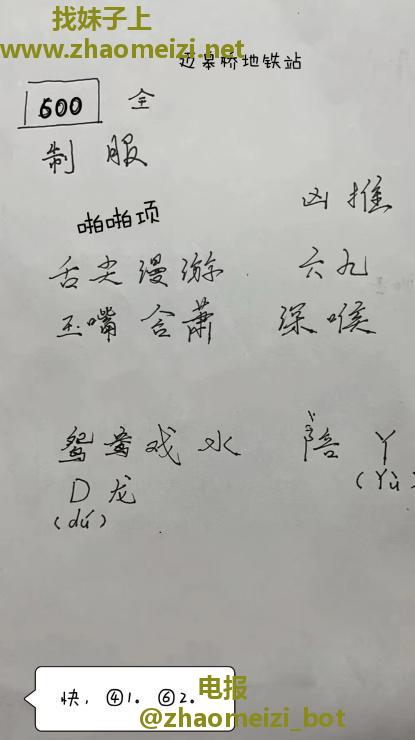 找妹子上
www.zhaomeizi.net
迈皋桥地铁站
600 全
制服
凶推
啪啪项
舌尖漫游 六九
玉嘴含萧 深喉
鸳鸯戏水 陪 丫
D龙 (Yù
(dú)
快,④1。⑥2。
电报
@zhaomeizi_bot